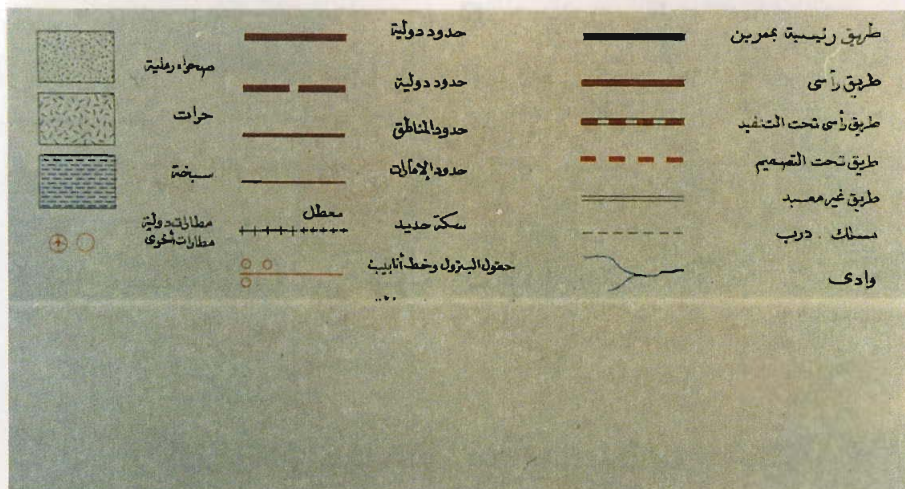 طريق رئيسية بممرين
طريق رأسى
طريق رأسى تحت التنفيد
طريق تحت التصميم
طريق غير معبد
مسلك . درب
وادى
حدود دولية
حدود دولية
حدود المناطق
حدود الإمارات
معطل
سكة حديد
حقول البترول وخط أنابيب
صحراء رملية
حرات
سبخة
مطارات دولية
مطارات أخرى